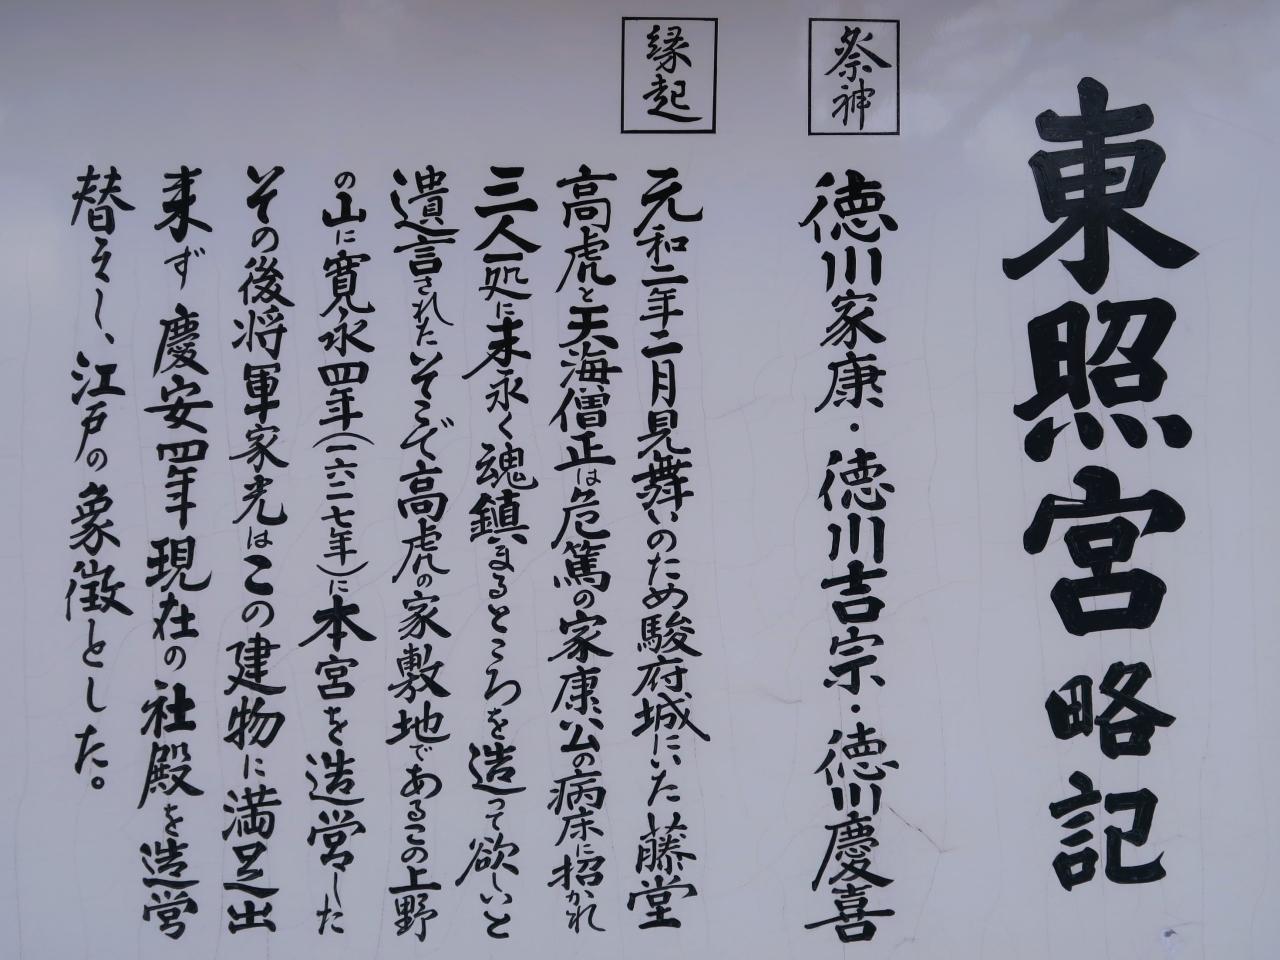 東照宮略記
祭神
徳川家康・徳川吉宗・徳川慶喜
縁起
元和二年二月見舞いのため駿府城にいた藤堂
高虎と天海僧正は危篤の家康公の病床に招かれ
三人一処に末永く魂鎮まるところを造って欲しいと
遺言されたいそこで高虎の家敷地であるこの上野
の山に寛永四年(一六二七年)に本宮を造営した
その後将軍家光はこの建物に満足出
来ず慶安四年現在の社殿を造営
替えし、江戸の象徴とした。